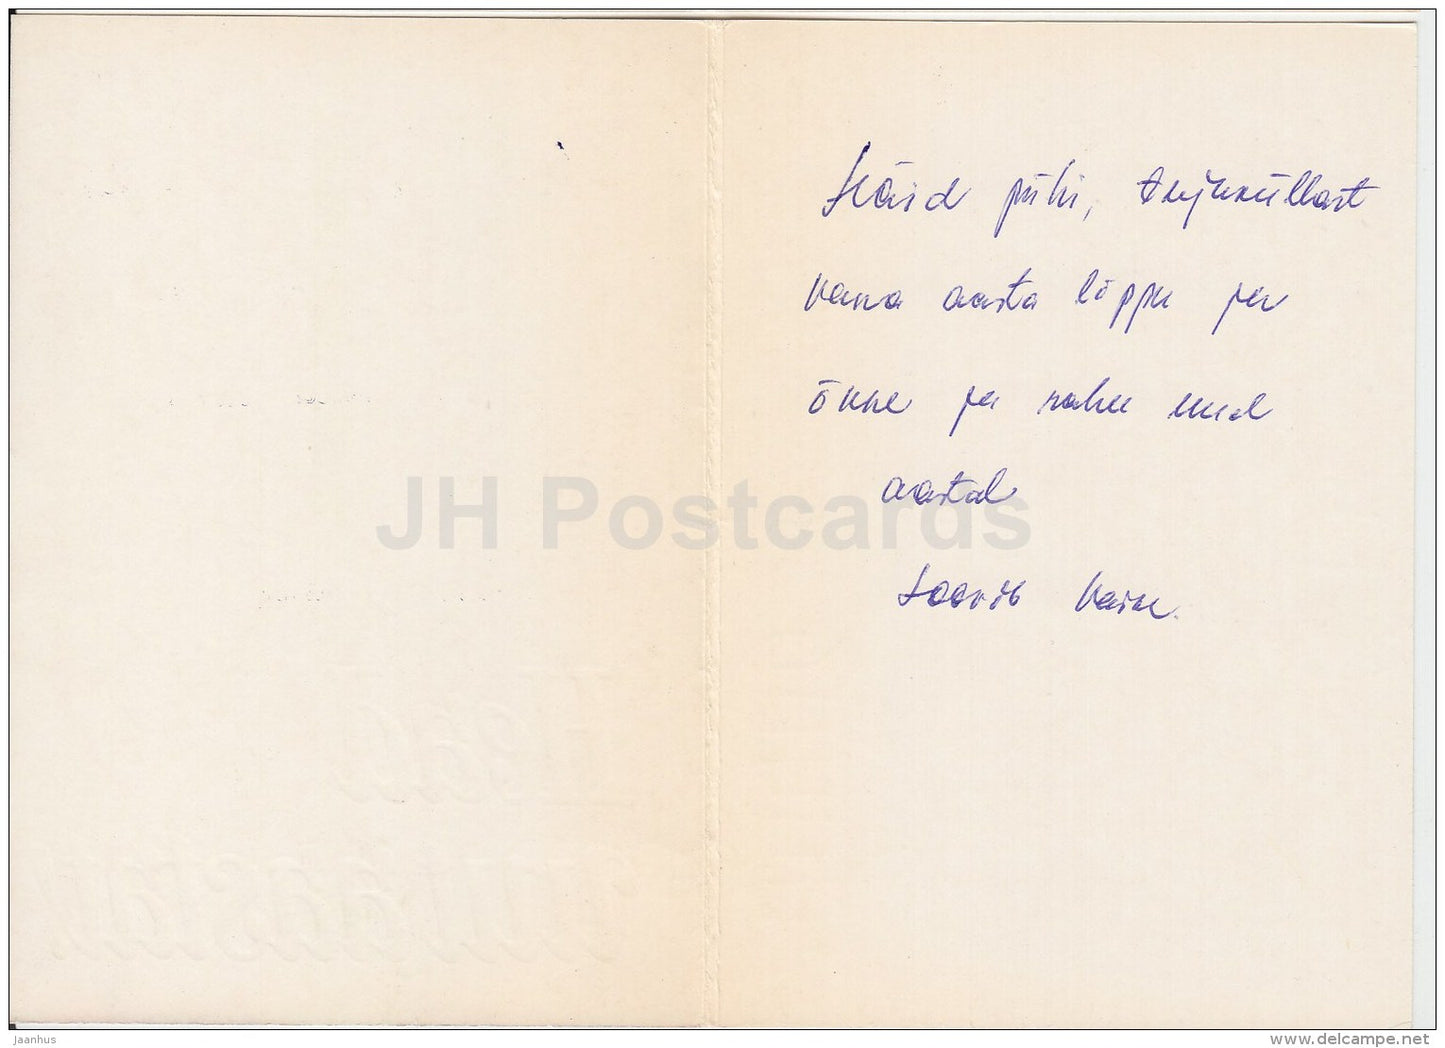 Häid pühi, tujuküllast
vana aasta lõppu ja
õnne ja rahu uuel
aastal
Soovib
JH Postcards
jaanhus
www.delcampe.net